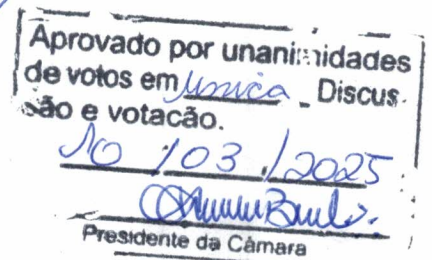 Aprovado por unanimidades
de votos em única Discus
são e votacão.
10 / 03 / 2025
Presidente da Câmara